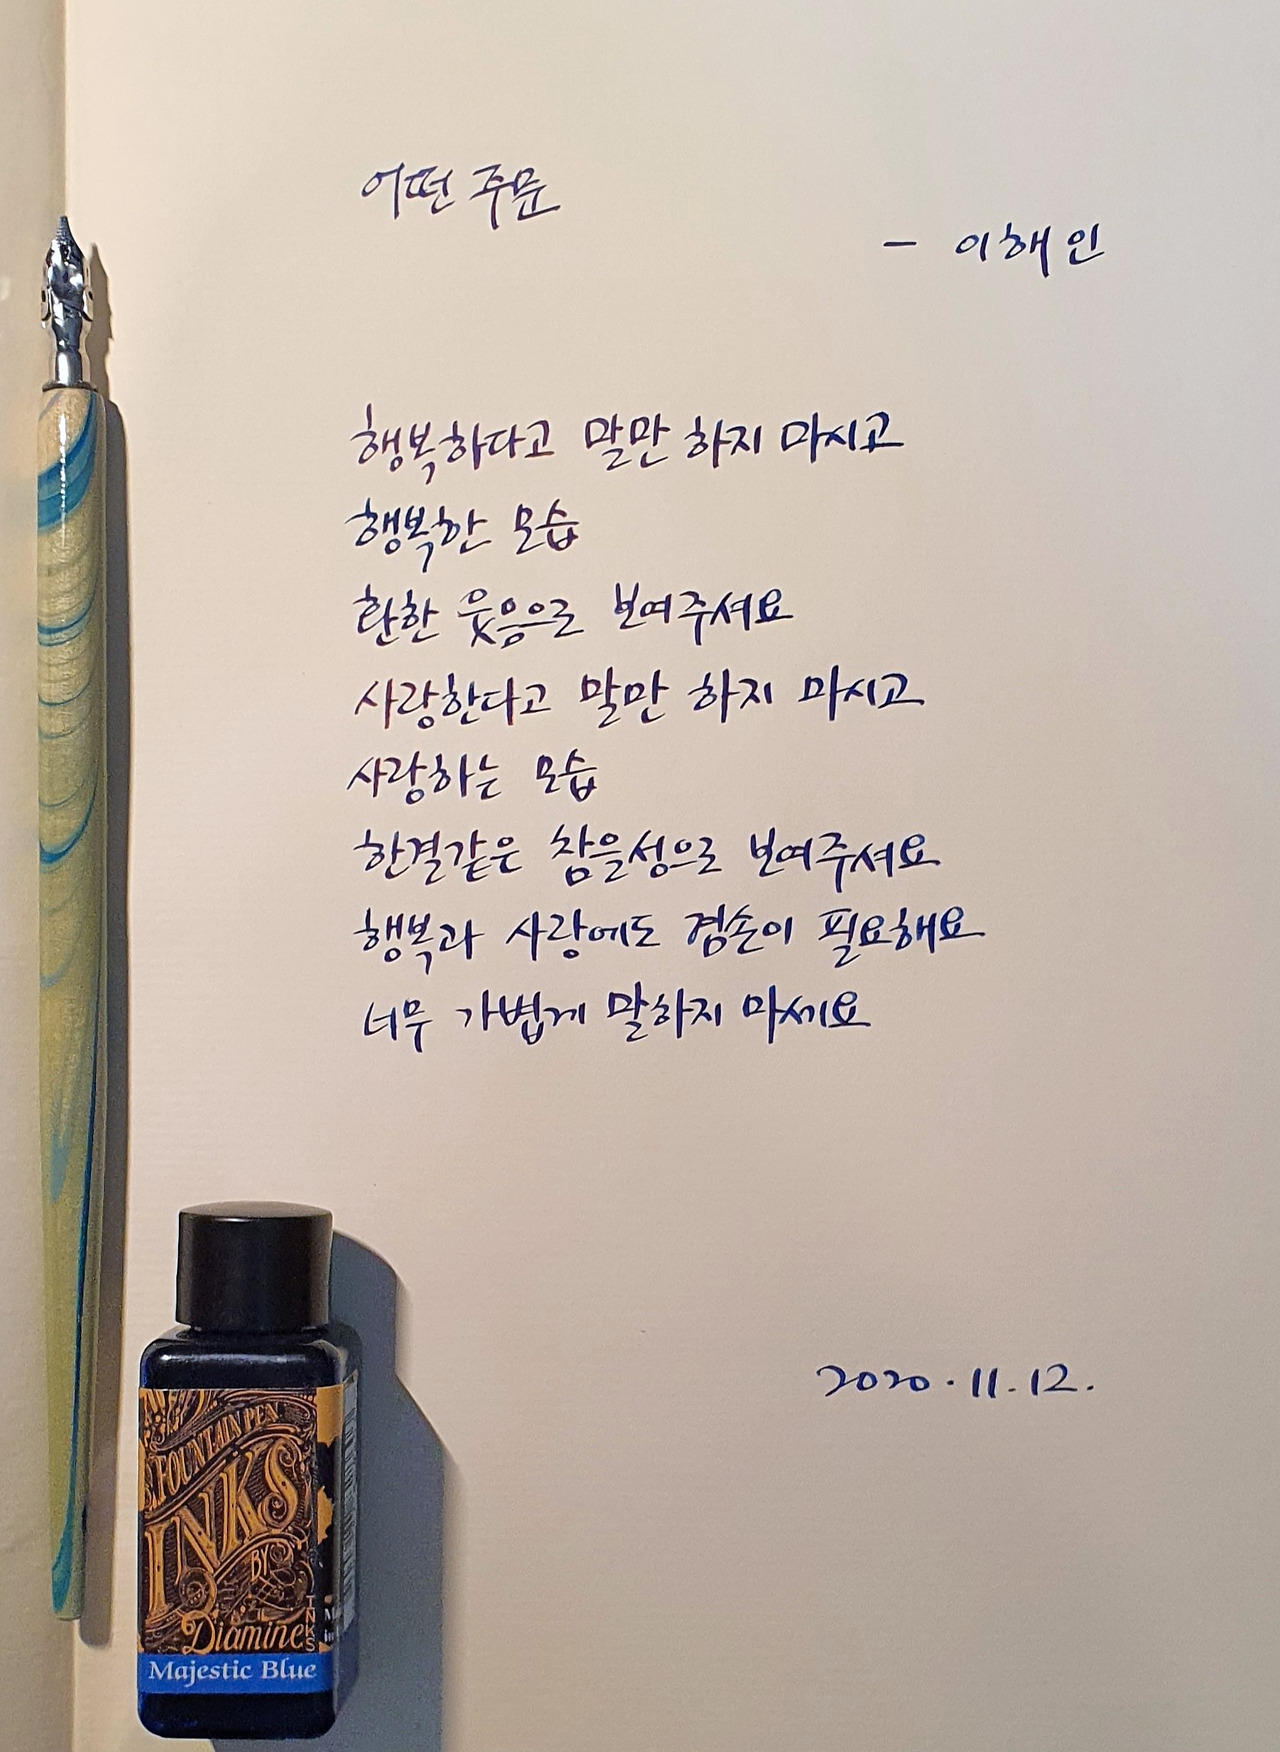 어떤 주문
- 이해인
행복하다고 말만 하지 마시고
행복한 모습
환한 웃음으로 보여주셔요
사랑한다고 말만 하지 마시고
사랑하는 모습
한결같은 참을성으로 보여주셔요
행복과 사랑에도 겸손이 필요해요
너무 가볍게 말하지 마세요
2020.11.12.
FOUNTAIN PEN
INKS
BY
Diamine
INKS
Majestic Blue